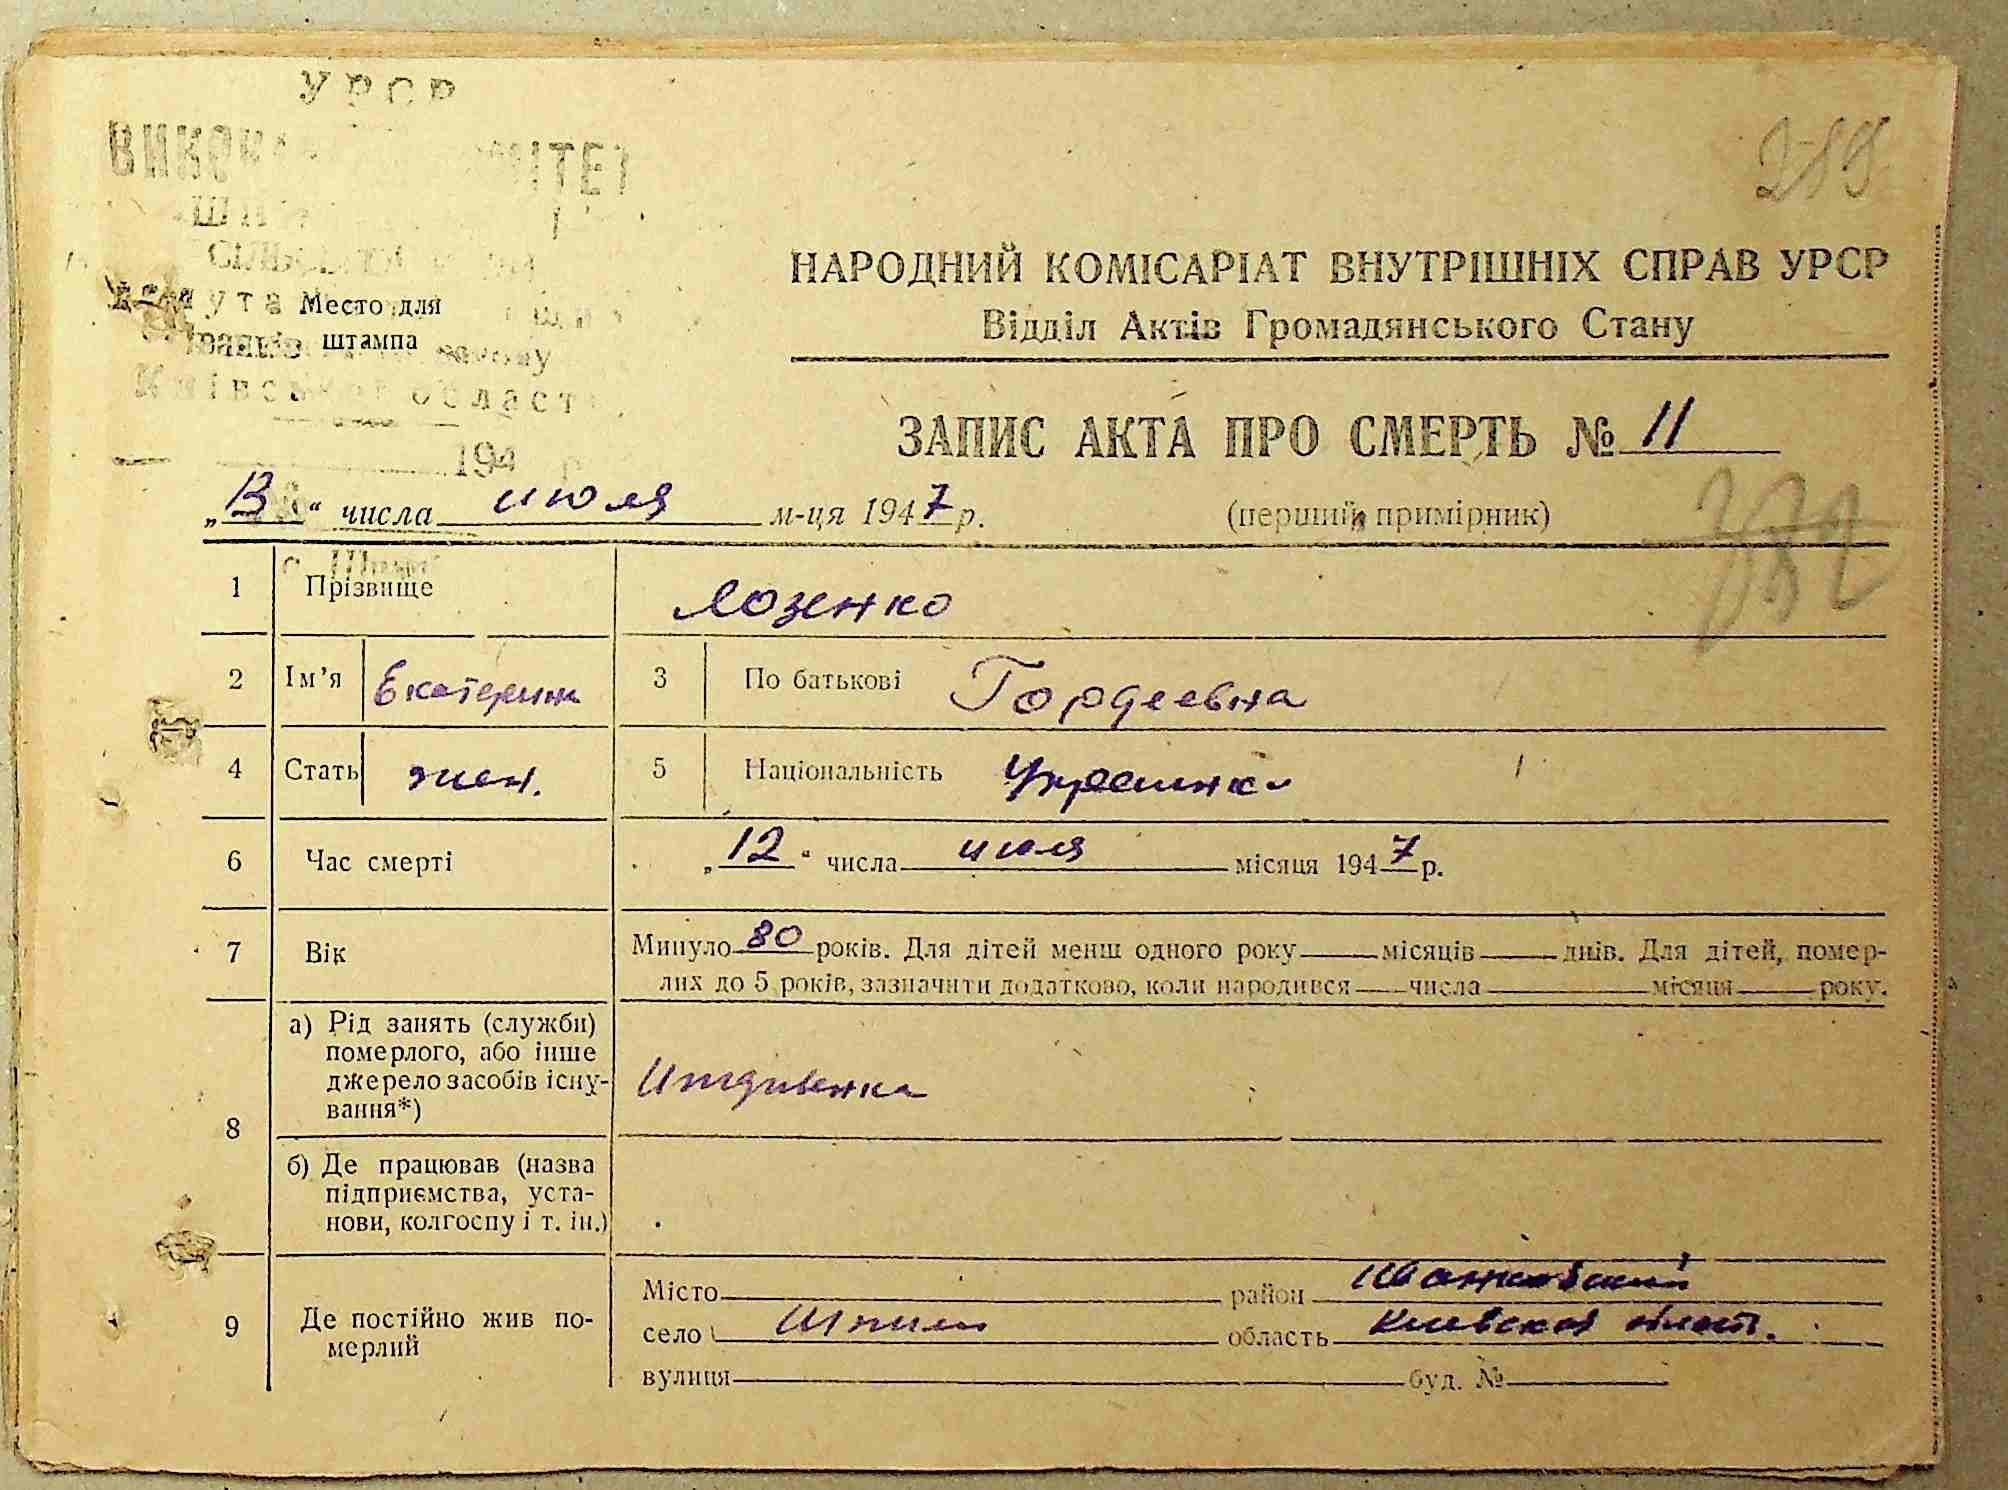 УРСР
289
Київської області
Место для
штампа
194 р
НАРОДНИЙ КОМІСАРІАТ ВНУТРІШНІХ СПРАВ УРСР
Відділ Актів Громадянського Стану
ЗАПИС АКТА ПРО СМЕРТЬ № 11
„13“ числа июля м-ця 1947 р.
(перший примірник)
1 Прізвище Лозенко
2 Ім’я Екатерина 3 По батькові Гордеевна
4 Стать жен. 5 Національність Украинка
6 Час смерті „12“ числа июля місяця 1947 р.
7 Вік Минуло 80 років. Для дітей менш одного року місяців днів. Для дітей, помер-
лих до 5 років, зазначити додатково, коли народився числа місяця року.
8 а) Рід занять (служби)
померлого, або інше
джерело засобів існу-
вання*)
Иждивенка
б) Де працював (назва
підприємства, уста-
нови, колгоспу і т. ін.)
9 Де постійно жив по-
мерлий
Місто район Иванковский
село Шпили область Киевская област.
вулиця буд. №